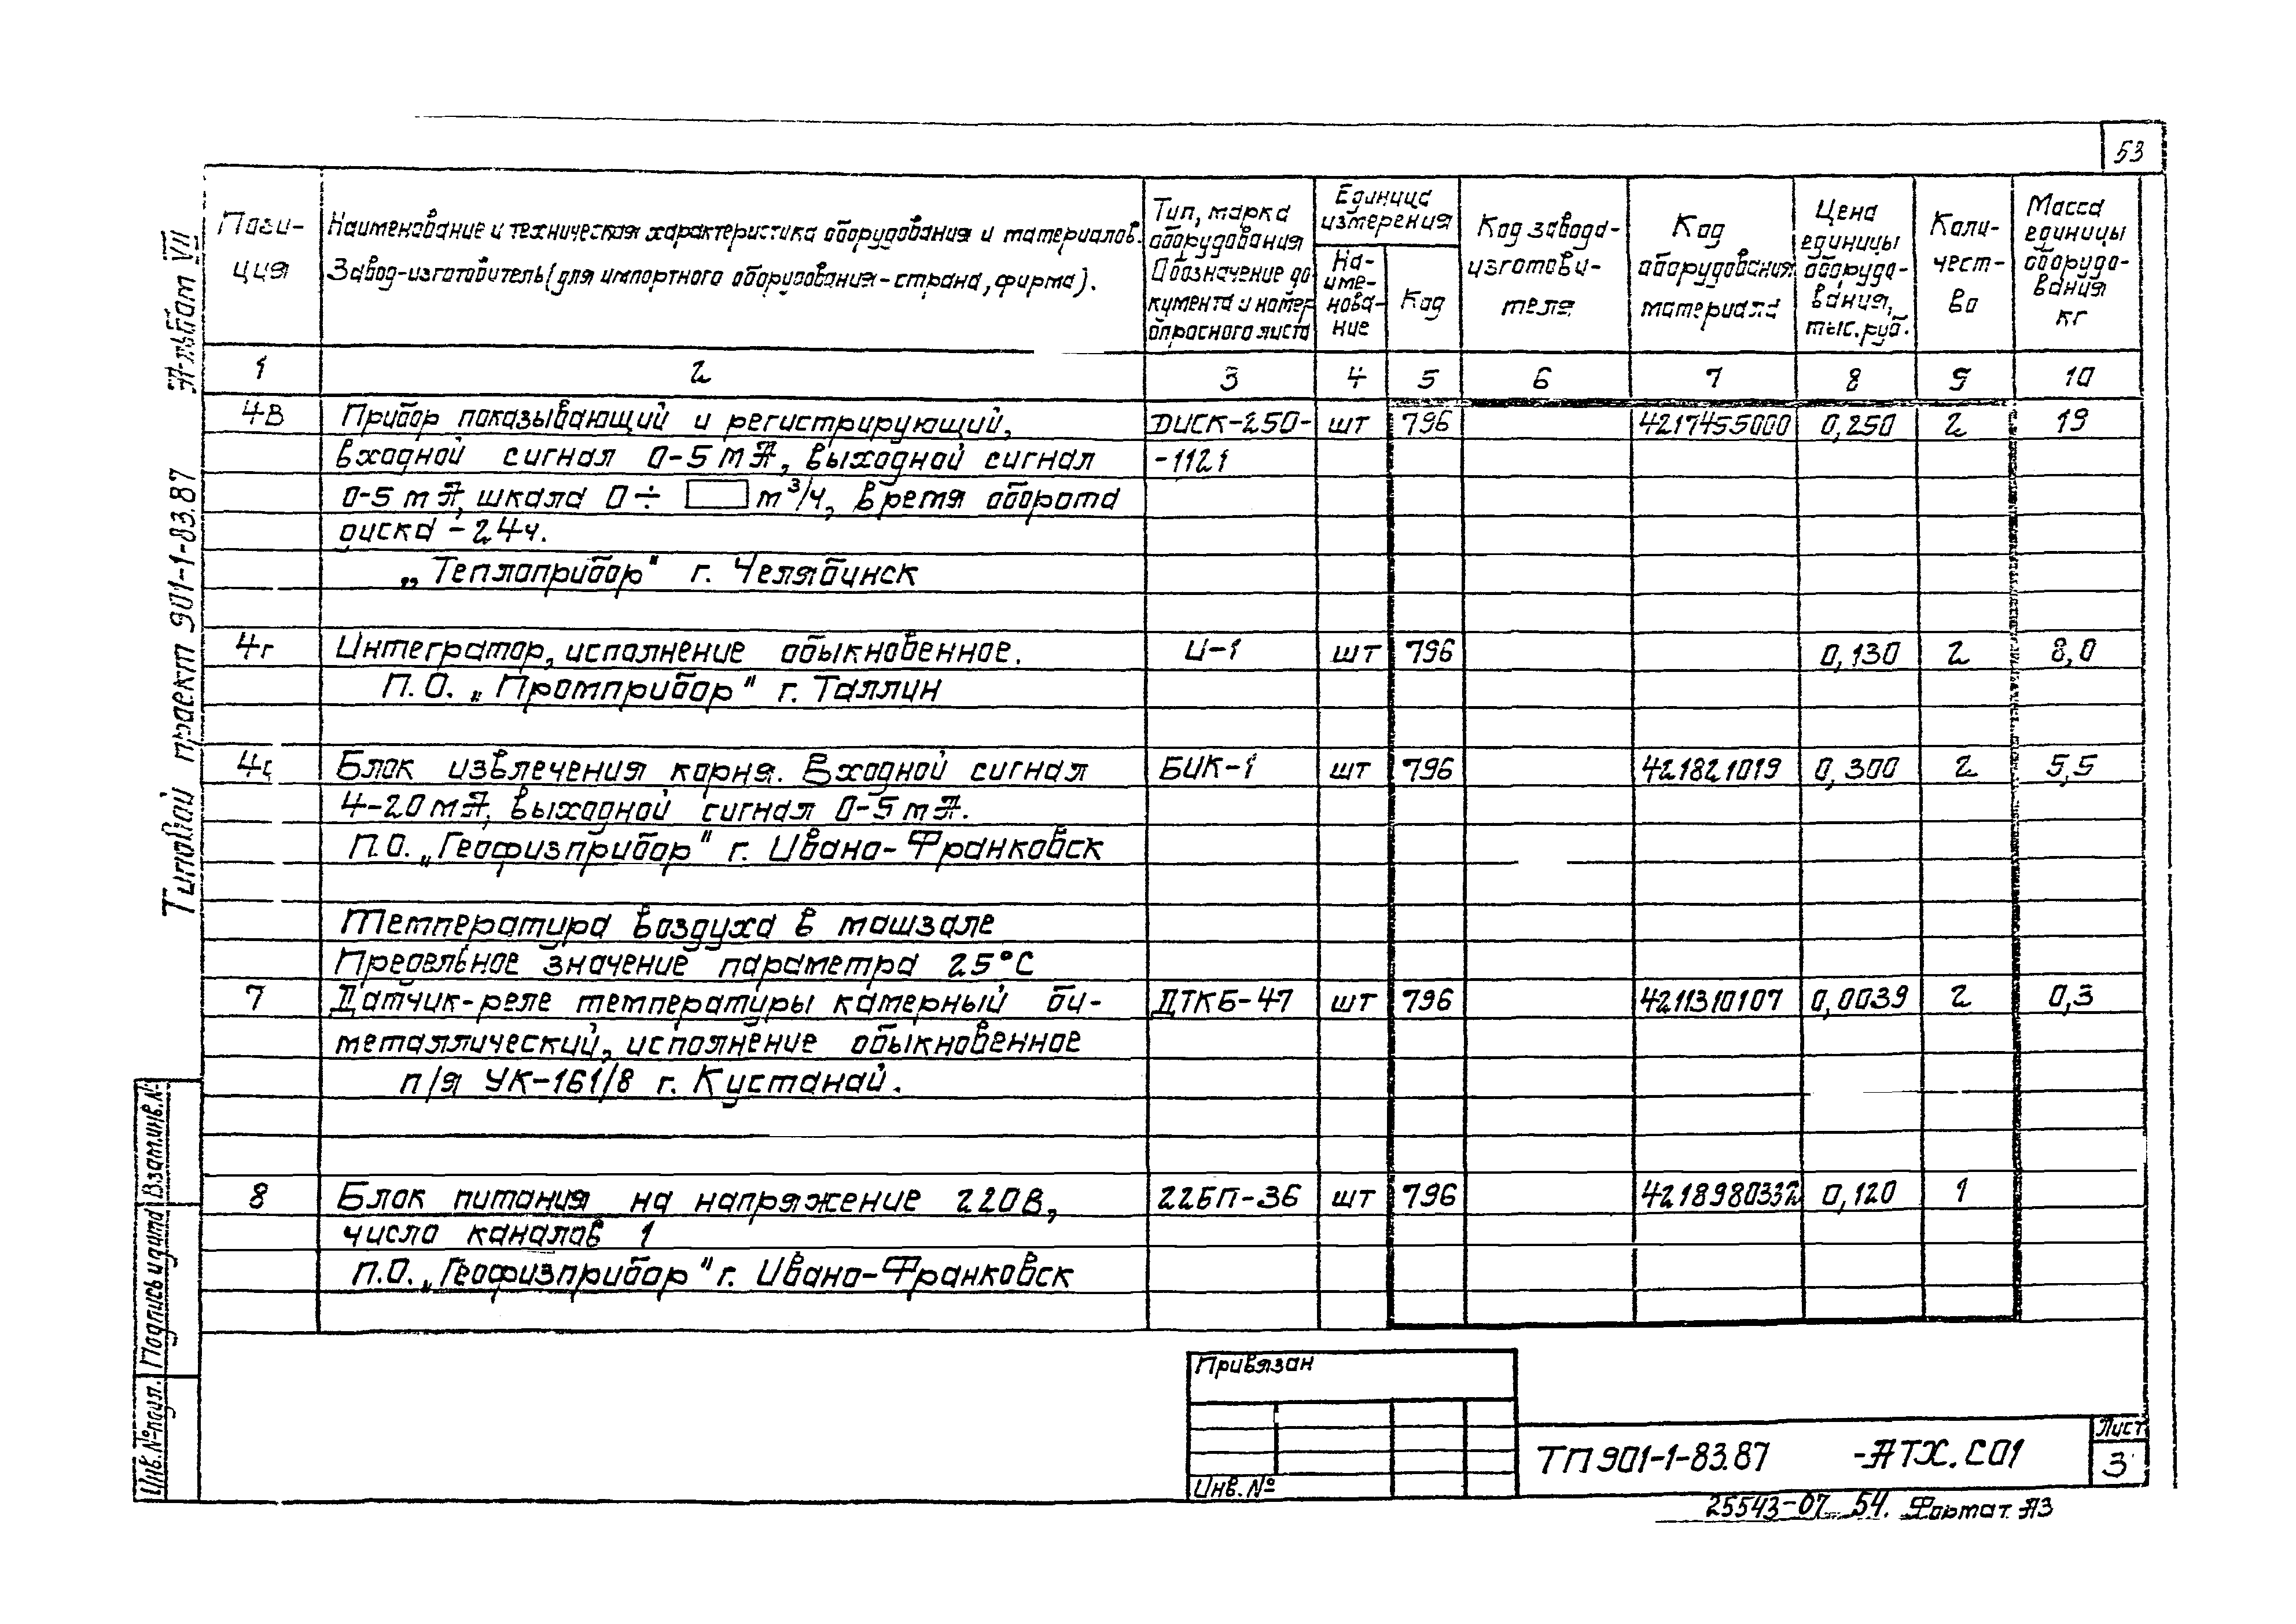 53
Типовой проект 901-1-83.87 Альбом VII
Пози-
ция
Наименование и техническая характеристика оборудования и материалов.
Завод-изготовитель (для импортного оборудования - страна, фирма).
Тип, марка
оборудования
Обозначение до
кумента и номер
опросного листа
Единица
измерения
На-
име-
нова-
ние
Код
Код завода-
изготови-
теля
Код
оборудования
материала
Цена
единицы
оборудо-
вания,
тыс.руб.
Коли-
чест-
во
Масса
единицы
оборудо-
вания
кг
1 2 3 4 5 6 7 8 9 10
4в Прибор показывающий и регистрирующий, ДИСК-250- шт 796 4217455000 0,250 2 19
входной сигнал 0-5 mА, выходной сигнал -1121
0-5 mА, шкала 0÷ m³/ч, время оборота
диска - 24ч.
„Теплоприбор" г. Челябинск
4г Интегратор, исполнение обыкновенное. И-1 шт 796 0,130 2 8,0
П.О. „Промприбор" г. Таллин
Блок извлечения корня. Входной сигнал БИК-1 шт 796 421821019 0,300 2 5,5
4-20 mА, выходной сигнал 0-5 mА.
П.О. „Геофизприбор" г. Ивано-Франковск
Температура воздуха в машзале
Предельное значение параметра 25°С
7 Датчик-реле температуры камерный би- ДТКБ-47 шт 796 4211310107 0,0039 2 0,3
металлический, исполнение обыкновенное
п/я УК-161/8 г. Кустанай.
8 Блок питания на напряжение 220В, 22БП-36 шт 796 4218980332 0,120 1
число каналов 1
П.О. „Геофизприбор" г. Ивано-Франковск
Инв.№подл. Подпись и дата Взам.инв.№
Привязан
Инв. №
ТП 901-1-83.87 -АТХ.С01
Лист
3
25543-07 54. Формат А3